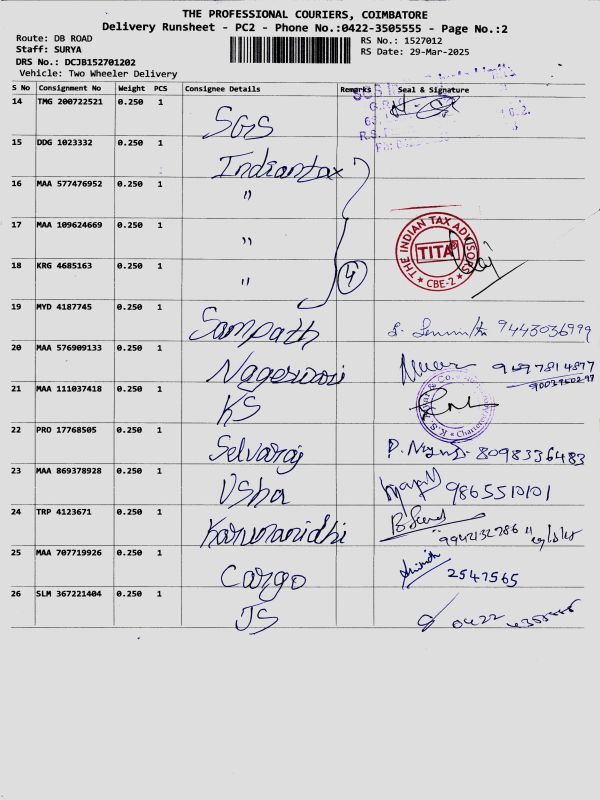 THE PROFESSIONAL COURIERS, COIMBATORE
Delivery Runsheet - PC2 - Phone No.:0422-3505555 - Page No.:2
Route: DB ROAD
Staff: SURYA
DRS No.: DCJB152701202
Vehicle: Two Wheeler Delivery
RS No.: 1527012
RS Date: 29-Mar-2025
S No Consignment No Weight PCS Consignee Details Remarks Seal & Signature
14 TMG 200722521 0.250 1 SGS
15 DDG 1023332 0.250 1 Indiantax
16 MAA 577476952 0.250 1 "
17 MAA 109624669 0.250 1 "
THE INDIAN TAX ADVISORS
TITA
CBE-2
18 KRG 4685163 0.250 1 " 4
19 MYD 4187745 0.250 1 Sampath 9443036999
20 MAA 576909133 0.250 1 Nageswari
21 MAA 111037418 0.250 1 KS
22 PRO 17768505 0.250 1 Selvaraj 8098336483
23 MAA 869378928 0.250 1 Usha 9865510101
24 TRP 4123671 0.250 1 Karunanidhi 9942132786
25 MAA 707719926 0.250 1 Cargo 2547565
26 SLM 367221404 0.250 1 JS 0422